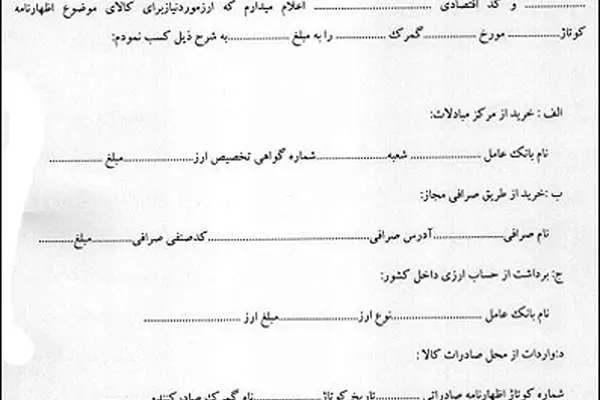 ................ و کد اقتصادی ................................ اعلام میدارم که ارزموردنیازبرای کالای موضوع اظهارنامه
کوتاژ.............. مورخ ..............گمرک .............. را به مبلغ .................به شرح ذیل کسب نمودم:
الف : خرید از مرکز مبادلات:
نام بانک عامل .................. شعبه...................شماره گواهی تخصیص ارز...................مبلغ ..............
ب :خرید از طریق صرافی مجاز:
نام صرافی...................آدرس صرافی............................................کدصنفی صرافی...........مبلغ..........
ج: برداشت از حساب ارزی داخل کشور:
نام بانک عامل ........................نوع ارز.....................مبلغ ارز ..........................
د:واردات از محل صادرات کالا :
شماره کوتاژ اظهارنامه صادراتی ............تاریخ کوتاژ..................نام گمرک صادرکننده................